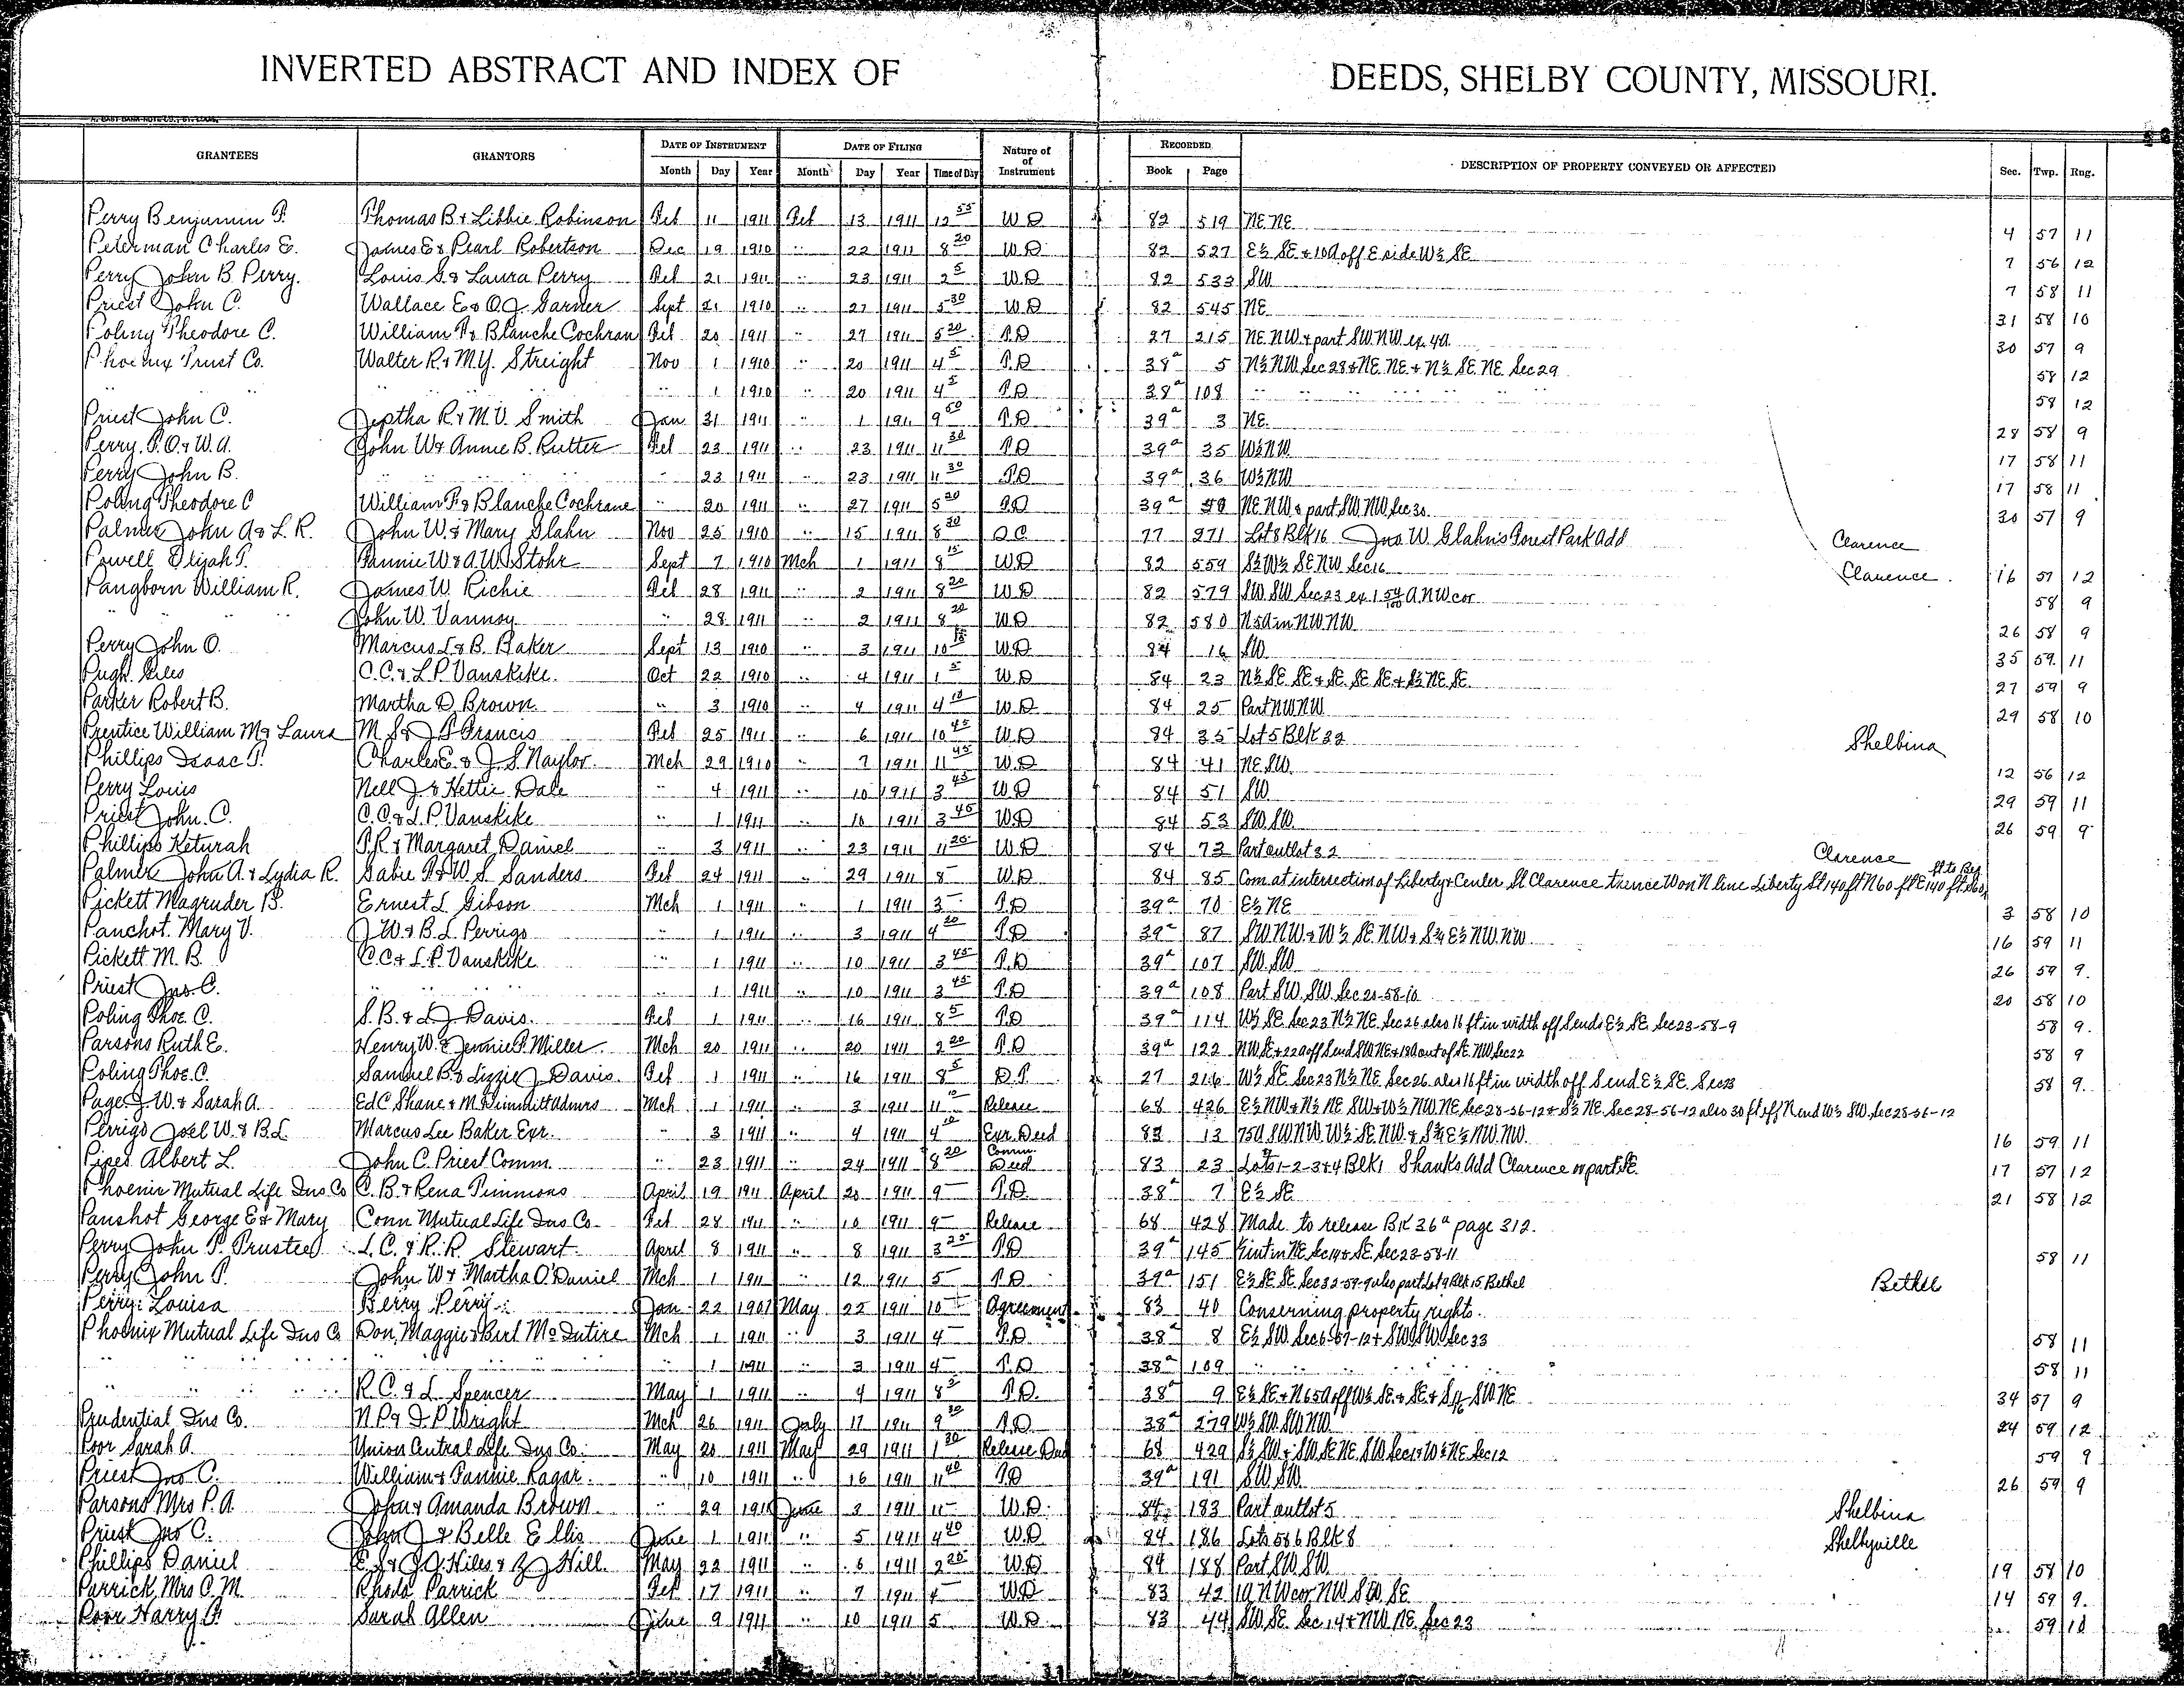 INVERTED ABSTRACT AND INDEX OF DEEDS, SHELBY COUNTY, MISSOURI.
GRANTEES GRANTORS DATE OF INSTRUMENT DATE OF FILING Nature of of Instrument RECORDED DESCRIPTION OF PROPERTY CONVEYED OR AFFECTED Sec. Twp. Rng.
Month Day Year Month Day Year Time of Day Book Page
Perry Benjamin F. Thomas B & Libbie Robinson Feb 11 1911 Feb 13 1911 12 55 W D 82 519 NE NE 4 57 11
Peterman Charles E. James E & Pearl Robertson Dec 19 1910 " 22 1911 8 20 W.D 82 527 E½ SE & 10A off E side W½ SE 7 56 12
Perry John B Perry. Louis & Laura Perry Feb 21 1911 " 23 1911 2 5 W.D 82 533 SW 7 58 11
Priest John C. Wallace E & O.J. Garner Sept 21 1910 " 27 1911 5 30 W D 82 545 NE 31 58 10
Poling Theodore C. William F & Blanche Cochran Feb 20 1911 " 27 1911 5 20 T.D 27 215 NE NW & part SW NW ex 4A 30 57 9
Phoenix Trust Co. Walter R & M.Y. Streight Nov 1 1910 " 20 1911 4 5 T.D 38a 5 N½ NW Sec 28 & NE NE & N½ SE NE Sec 29 58 12
" " 1 1910 " 20 1911 4 5 T.D 38a 108 " " 58 12
Priest John C. Jeptha R & M.V. Smith Jan 31 1911 " 1 1911 9 50 T.D 39a 3 NE. 28 58 9
Perry, P.O. & W.A. John W & Annie B. Rutter Feb 23 1911 " 23 1911 11 30 T D 39a 35 W½ NW 17 58 11
Perry John B. " " 23 1911 " 23 1911 11 30 T.D 39a 36 W½ NW 17 58 11
Poling Theodore C William F & Blanche Cochrane " 20 1911 " 27 1911 5 20 T.D 39a 50 NE NW & part SW NW Sec 30. 30 57 9
Palmer John A & L.R. John W. & Mary Glahn Nov 25 1910 " 15 1911 8 30 Q C 77 271 Lot 8 Blk 16 Jno W. Glahn's Forest Park Add Clarence
Powell Elijah T. Fannie W & A.W. Stohr Sept 7 1910 Mch 1 1911 8 15 W D 82 559 S½ W½ SE NW Sec 16 Clarence. 16 57 12
Pangborn William R. James W. Richie Feb 28 1911 " 2 1911 8 20 W D 82 579 SW SW Sec 23 ex 1 54/100 A NW cor 58 9
" " John W. Vannoy " 28 1911 " 2 1911 8 20 W D 82 580 N 5A in NW NW 26 58 9
Perry John O. Marcus L & B. Baker Sept 13 1910 " 3 1911 10 15 W.D 84 16 SW 35 59 11
Pugh Giles C.C. & L.P. Vanskike. Oct 22 1910 " 4 1911 1 5 W D 84 23 N½ SE SE & SE SE SE & S½ NE SE 27 59 9
Parker Robert B. Martha D. Brown " 3 1910 " 4 1911 4 10 W.D 84 25 Part NW NW 29 58 10
Prentice William M & Laura M.S. & J. Francis Feb 25 1911 " 6 1911 10 45 W.D 84 35 Lot 5 Blk 32 Shelbina
Phillips Isaac T. Charles E. & J.S. Naylor Mch 29 1910 " 7 1911 11 45 W.D 84 41 NE SW 12 56 12
Perry Louis Nell J & Hettie Dale " 4 1911 " 10 1911 3 45 W D 84 51 SW 29 59 11
Priest John. C. C.C. & L.P. Vanskike " 1 1911 " 10 1911 3 45 W.D 84 53 SW SW 26 59 9
Phillips Keturah P.R & Margaret Daniel " 3 1911 " 23 1911 11 20 W D 84 73 Part outlot 32 Clarence
Palmer John A. & Lydia R. Gabie & W.S. Sanders Feb 24 1911 " 29 1911 8 W D 84 85 Com at intersection of Liberty & Center St Clarence thence W on N line Liberty St 140 ft N 60 ft E 140 ft S 60 ft to Beg
Pickett Magruder B. Ernest L Gibson Mch 1 1911 " 1 1911 3 T.D 39a 70 E½ NE 3 58 10
Panchot. Mary V. J.W. & B.L. Perrigo " 1 1911 " 3 1911 4 20 T.D. 39a 87 SW NW & W½ SE NW & S¾ E½ NW NW 16 59 11
Pickett M.B. C.C & L.P. Vanskike " 1 1911 " 10 1911 3 45 T.D 39a 107 SW. SW 26 59 9.
Priest Jno. C. " " 1 1911 " 10 1911 3 45 T.D 39a 108 Part SW SW Sec 20-58-10 20 58 10
Poling Thoe. C. S.B. & L.J. Davis. Feb 1 1911 " 16 1911 8 5 T.D 39a 114 W½ SE Sec 23 N½ NE Sec 26 also 16 ft in width off S end E½ SE Sec 23-58-9 58 9.
Parsons Ruth E. Henry W. & Jennie P. Miller. Mch 20 1911 " 20 1911 2 20 T.D 39a 122 NW SE & 22A off S end SW NE & 18A out of SE NW Sec 22 58 9
Poling Thoe. C. Samuel B. & Lizzie J. Davis. Feb 1 1911 " 16 1911 8 5 D.T. 27 216 W½ SE Sec 23 N½ NE Sec 26 also 16 ft in width off S end E½ SE Sec 23 58 9.
Page J.W. & Sarah A. Ed C Shane & M Dimmitt Admrs Mch 1 1911 " 3 1911 11 10 Release 68 426 E½ NW & N½ NE SW & W½ NW NE Sec 28-56-12 & S½ NE Sec 28-56-12 also 30 ft off N end W½ SW Sec 28-56-12
Perrigo Joel W. & B.L. Marcus Lee Baker Exr. " 3 1911 " 4 1911 4 10 Exr. Deed 83 13 75A SW NW W½ SE NW & S¾ E½ NW NW 16 59 11
Pipes Albert L. John C. Priest Comm. " 23 1911 " 24 1911 8 20 Comm. Deed 83 23 Lots 1-2-3 & 4 Blk 1 Shanks Add Clarence or part SE 17 57 12
Phoenix Mutual Life Ins Co C.B. & Rena Timmons April 19 1911 April 20 1911 9 T.D. 38a 7 E½ SE 21 58 12
Panshot George E & Mary Conn Mutual Life Ins Co. Feb 28 1911 " 10 1911 9 Release 68 428 Made to release BK 36a page 312.
Perry John T. Trustee L.C. & R.R. Stewart April 8 1911 " 8 1911 3 25 T.D 39a 145 Sec 23-58-11 58 11
Perry John T. John W & Martha O'Daniel Mch 1 1911 " 12 1911 5 T.D 39a 151 E½ SE SE Sec 32-59-9 also part Lot 9 Blk 15 Bethel Bethel
Perry Louisa Berry Perry Jan 22 1907 May 22 1911 10 Agreement 83 40 Conserning property rights.
Phoenix Mutual Life Ins Co Don, Maggie & Birl McIntire Mch 1 1911 " 3 1911 4 T.D. 38a 8 E½ SW Sec 6-57-12 & SW SW Sec 33 58 11
" " " 1 1911 " 3 1911 4 T.D 38a 109 " " 58 11
" " R.C. & L. Spencer May 1 1911 " 4 1911 8 5 T.D. 38a 9 34 57 9
Prudential Ins Co. N.P. & I.P. Wright Mch 26 1911 July 17 1911 9 30 T.D 38a 279 W½ SW SW NW 24 59 12
Poor Sarah A. Union Central Life Ins Co. May 20 1911 May 29 1911 1 30 Release Deed 68 429 59 9
Priest Jno C. William & Fannie Ragar. " 10 1911 " 16 1911 11 40 T.D 39a 191 SW SW 26 59 9
Parsons Mrs P.A. John & Amanda Brown " 29 1911 June 3 1911 11 W.D. 84 183 Part outlot 5 Shelbina
Priest Jno C. John J & Belle Ellis June 1 1911 " 5 1911 4 40 W.D 84 186 Lots 5 & 6 Blk 8 Shelbyville
Phillips Daniel Hiles & Hill. May 22 1911 " 6 1911 2 25 W.D 84 188 Part SW SW 19 58 10
Parrick, Mrs C.M. Rhoda Parrick Feb 17 1911 " 7 1911 4 W.D 83 42 1A NW cor NW SW SE 14 59 9.
Poor Harry A. Sarah Allen June 9 1911 " 10 1911 5 W.D 83 44 SW SE Sec 14 & NW NE Sec 23 59 10